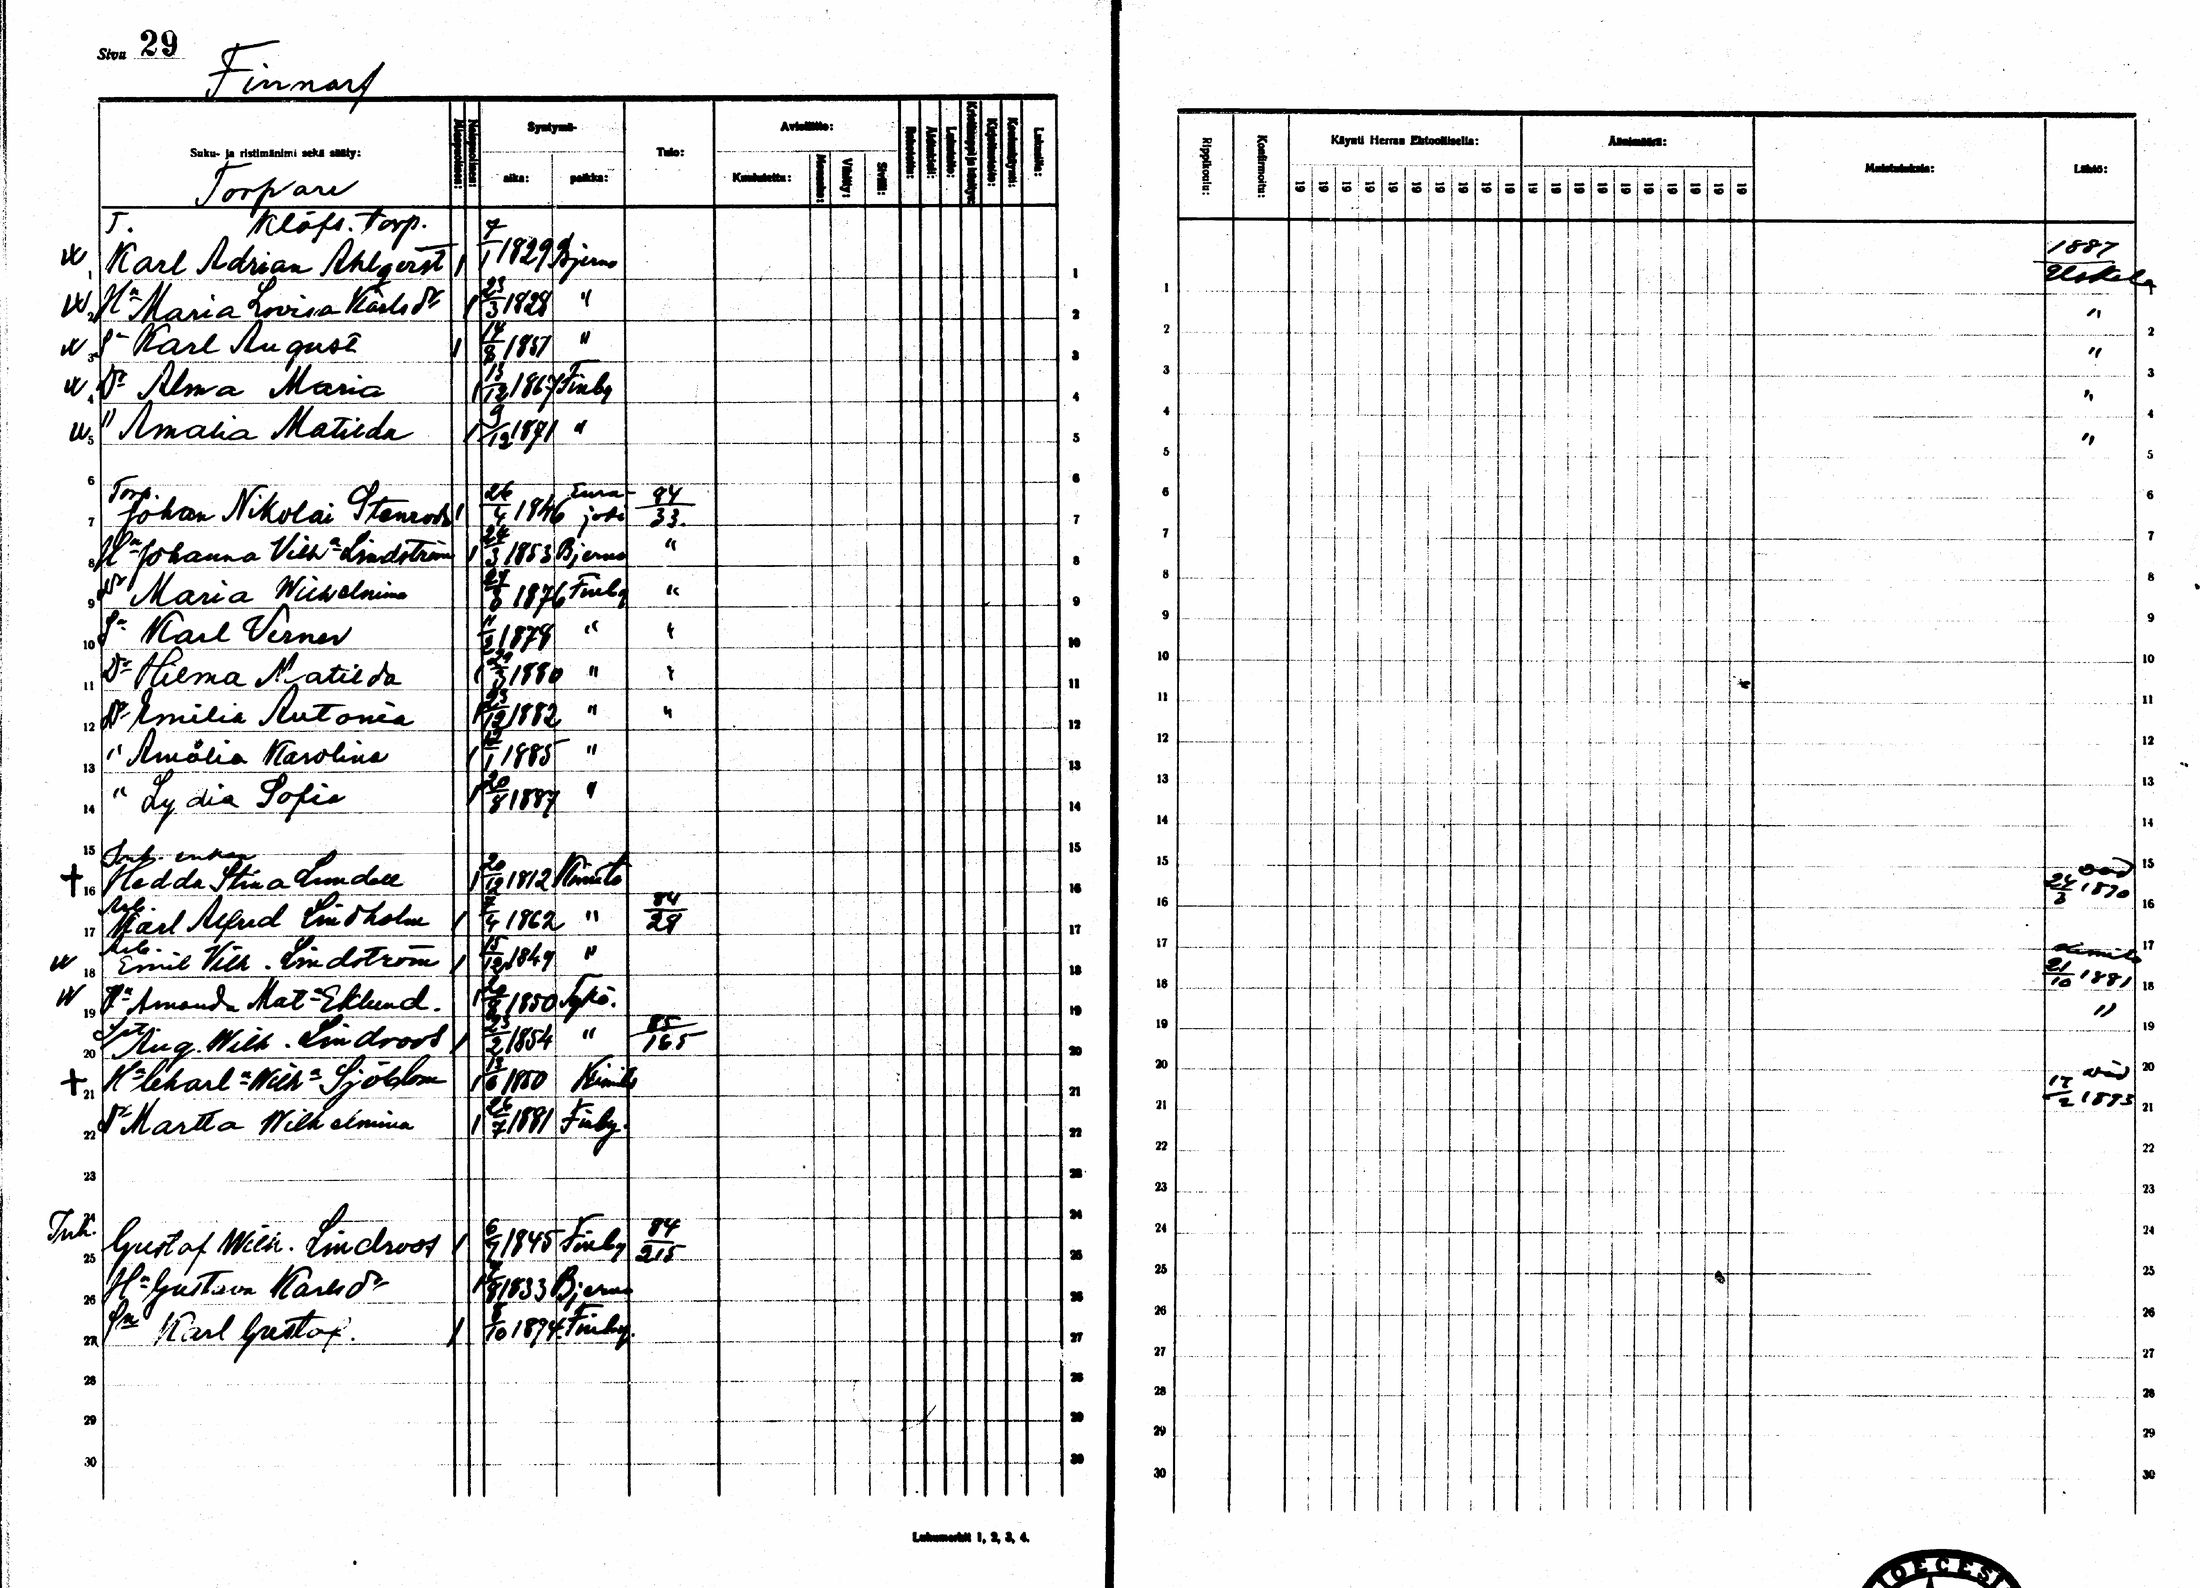 Sivu 29
Finnarf
Suku- ja ristimänimi sekä sääty: Miespuolinen: Naispuolinen: Syntymä- aika: paikka: Tulo: Avioliitto: Kuulutettu: Vihitty: Siviili: Rokotettu: Lukutaito: Kristinoppi ja käsitys: Kirjoitustaito: Luku
Rippikoulu: Konfirmoitu: Käynti Herran Ehtoollisella: Muistutuksia: Lähtö:
19 19 19 19 19 19 19 19 19 19 19 19 19 19 19 19 19 19 19 19
Torpare
T. Klöfs. torp.
1 Karl Adrian Ahlqvist 1 7/1 1829 Bjerno 1887 Uskela
2 Hn Maria Lovisa Karlsdr 1 23/3 1828 " "
3 Sn Karl August 1 14/8 1857 " "
4 Dr Alma Maria 1 13/12 1867 Finby "
5 " Amalia Matilda 1 9/12 1871 " "
6
7 Torp. Johan Nikolai Stenroos 1 26/4 1846 Eurajoki 84/33.
8 Hn Johanna Vilhna Lindström 1 24/3 1853 Bjerno "
9 Dr Maria Wilhelmina 1876 Finby "
10 Sn Karl Verner 1878 " "
11 Dr Hilma Matilda 1 1880 " "
12 Dr Emilia Antonia 1 23/12 1882 " "
13 " Amalia Karolina 1 12/1 1885 "
14 " Lydia Sofia 1 20/8 1887 "
15
16 † Inh. enkan Hedda Stina Lundell 1 20/12 1812 Kimito död 24/3 1890
17 Arb. Karl Alfred Lindholm 1 1862 " 84/29
18 Arb. Emil Vilh. Lindström 1 15/12 1849 " Kimito 21/10 1881
19 Hn Amanda Mat-a Eklund. 1 1850 Tykö. "
20 Aug. Wilh. Lindroos 1 23/2 1854 " 85/165
21 † Hn Charl-a Wilh-a Sjöblom 1 1850 Kimito död 17/2 1893
22 Dr Martta Wilhelmina 1 26/7 1881 Finby.
23
24
25 Inh. Gustaf Wilh. Lindroos 1 6/9 1845 Finby 84/215
26 Hn Gustava Karlsdr 1 1833 Bjerno
27 Sn Karl Gustaf. 1 8/10 1874 Finby.
28
29
30
Lukumerkit 1, 2, 3, 4.